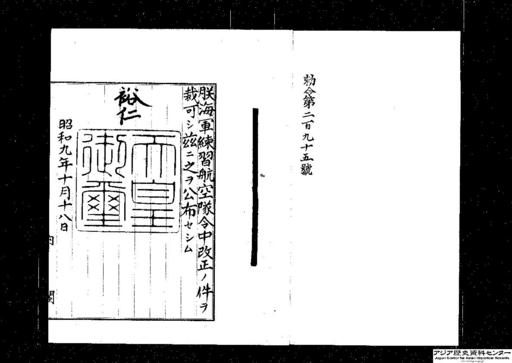 勅令第二百九十五號
朕海軍練習航空隊令中改正ノ件ヲ
裁可シ茲ニ之ヲ公布セシム
裕仁
天皇御璽
昭和九年十月十八日
内閣
アジア歴史資料センター
Japan Center for Asian Historical Records